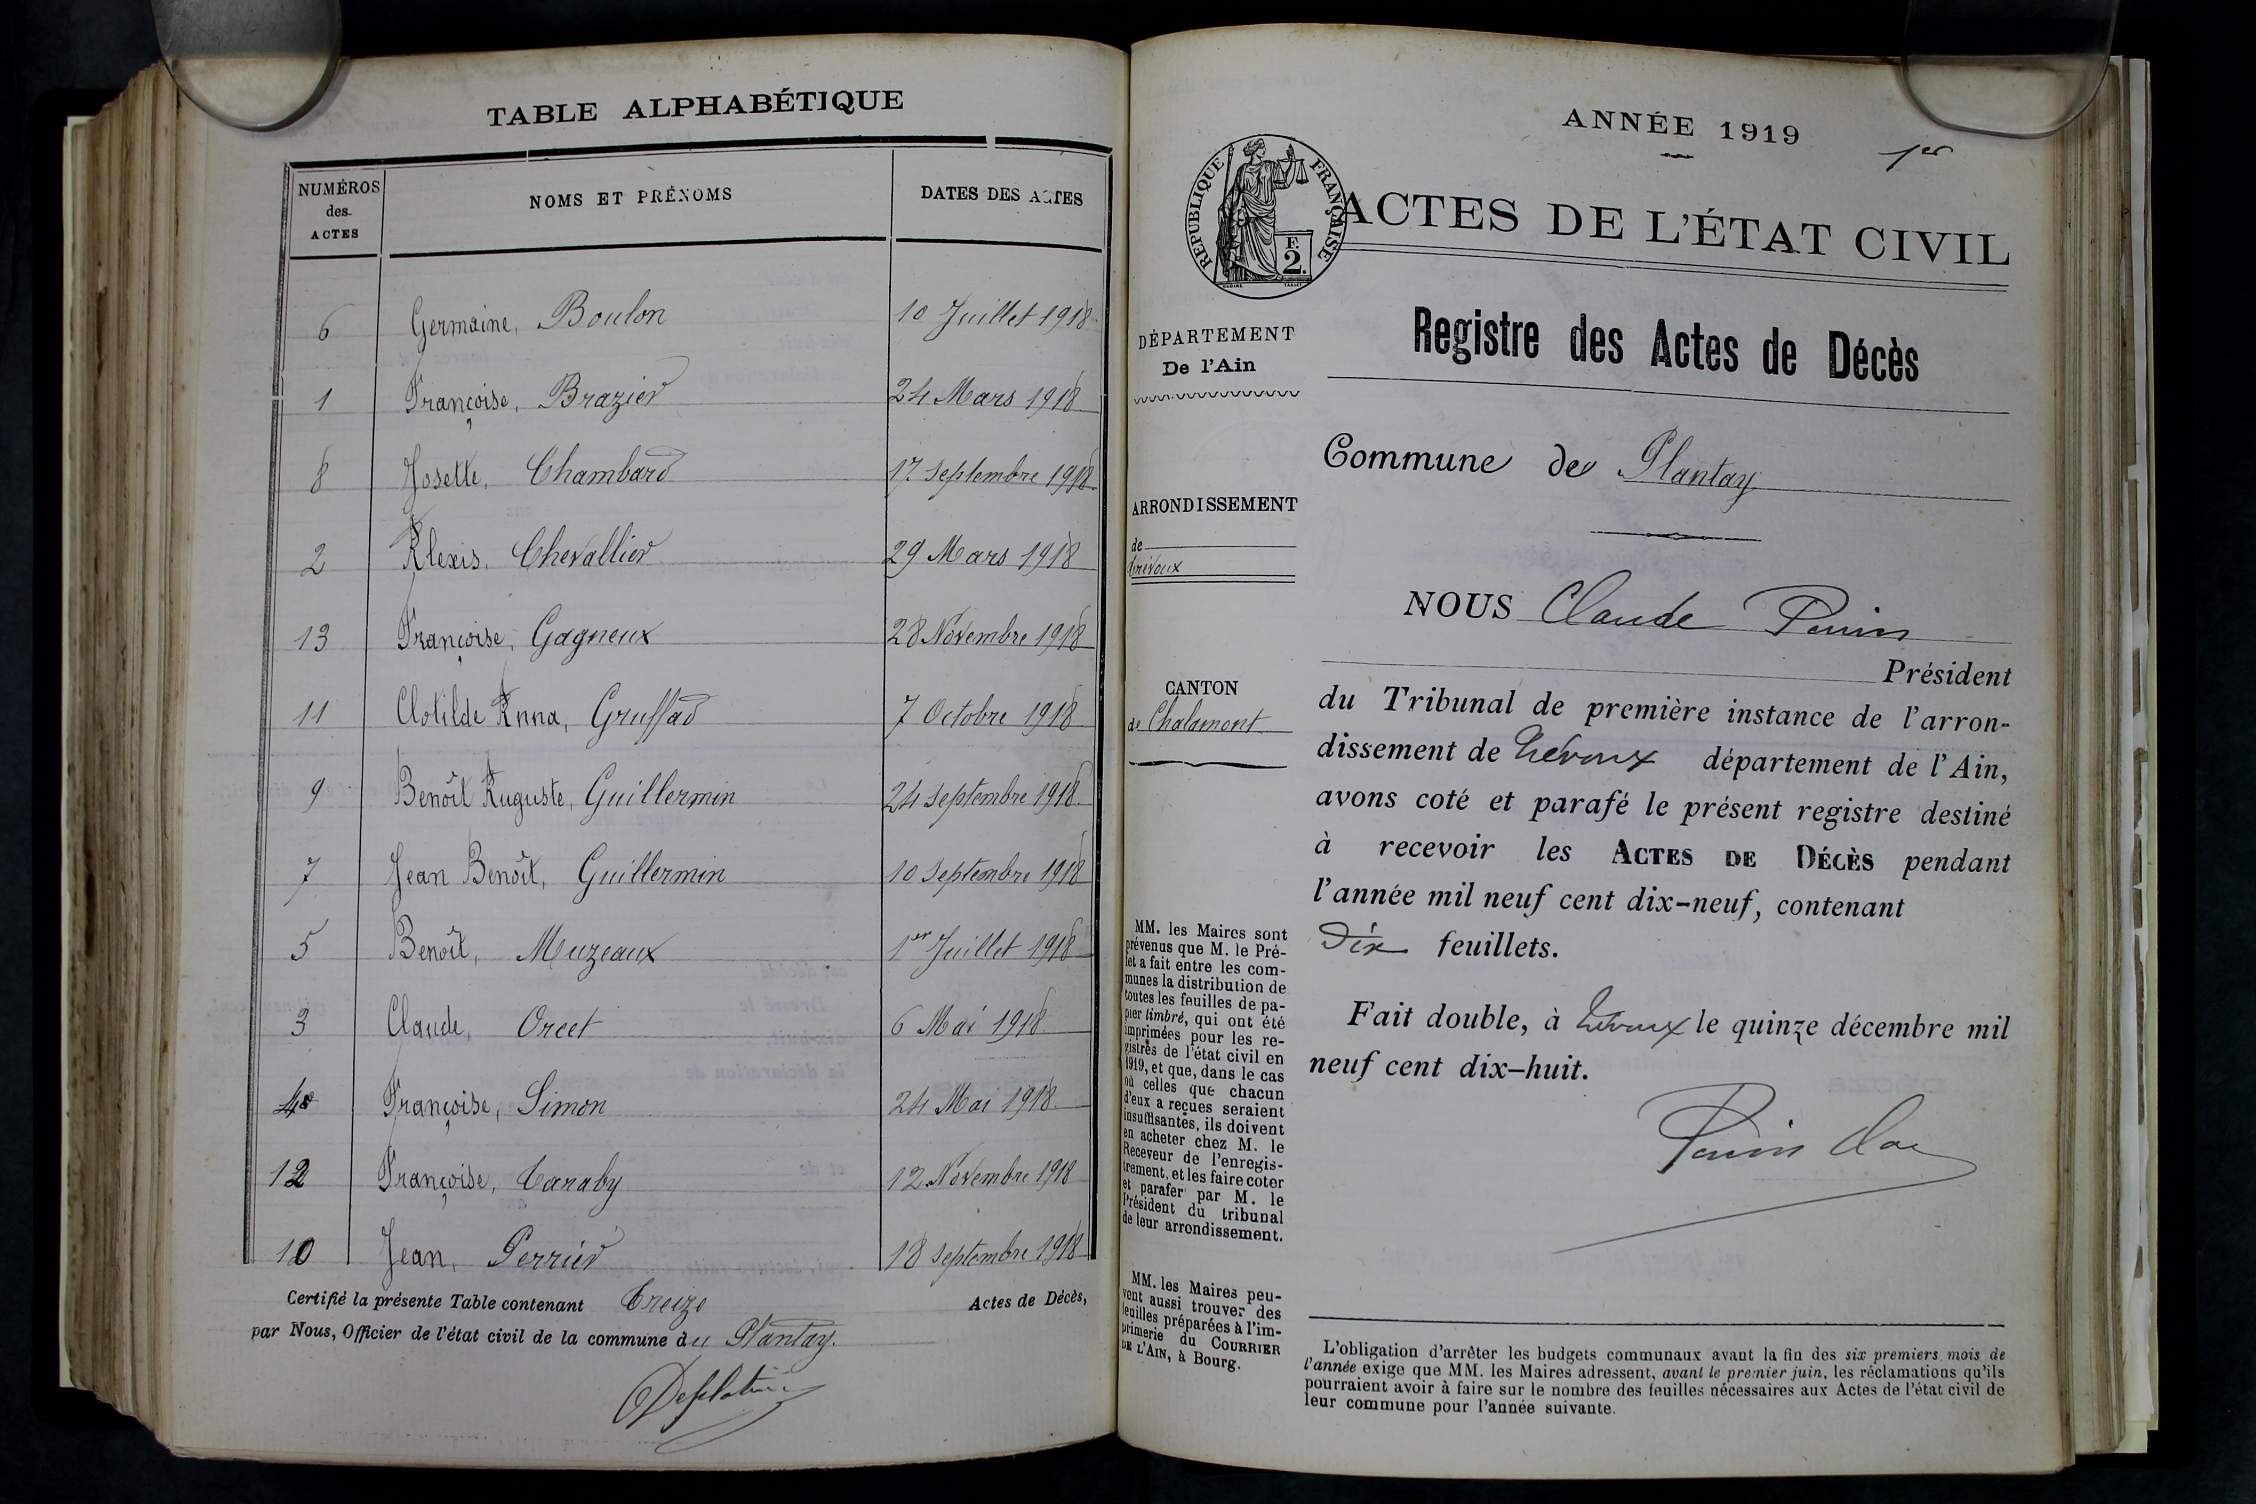 TABLE ALPHABÉTIQUE
NUMÉROS des ACTES
NOMS ET PRÉNOMS
DATES DES ACTES
6 Germaine, Boulon 10 Juillet 1918
1 Françoise, Brazier 24 Mars 1918
8 Josette, Chambard 17 Septembre 1918
2 Alexis, Chevallier 29 Mars 1918
13 Françoise, Gagneux 28 Novembre 1918
11 Clotilde Anna, Gruffad 7 Octobre 1918
9 Benoît Auguste, Guillermin 24 Septembre 1918
7 Jean Benoît, Guillermin 10 Septembre 1918
5 Benoît, Muzeaux 1er Juillet 1918
3 Claude, Orcet 6 Mai 1918
4 Françoise, Simon 24 Mai 1918
12 Françoise, Caraby 12 Novembre 1918
10 Jean, Perrier 18 Septembre 1918
Certifié la présente Table contenant Treize Actes de Décès,
par Nous, Officier de l'état civil de la commune du Plantay.
ANNÉE 1919
1er
RÉPUBLIQUE FRANÇAISE
F. 2.
ACTES DE L'ÉTAT CIVIL
DÉPARTEMENT
De l'Ain
ARRONDISSEMENT
de
Trévoux
CANTON
de Chalamont
MM. les Maires sont
prévenus que M. le Pré-
fet a fait entre les com-
munes la distribution de
toutes les feuilles de pa-
pier timbré, qui ont été
imprimées pour les re-
gistres de l'état civil en
1919, et que, dans le cas
où celles que chacun
d'eux a reçues seraient
insuffisantes, ils doivent
en acheter chez M. le
Receveur de l'enregis-
trement, et les faire coter
et parafer par M. le
Président du tribunal
de leur arrondissement.
MM. les Maires peu-
vent aussi trouver des
feuilles préparées à l'im-
primerie du COURRIER
DE L'AIN, à Bourg.
Registre des Actes de Décès
Commune de Plantay
NOUS Claude Perrin
Président
du Tribunal de première instance de l'arron-
dissement de Trévoux département de l'Ain,
avons coté et parafé le présent registre destiné
à recevoir les ACTES DE DÉCÈS pendant
l'année mil neuf cent dix-neuf, contenant
Dix feuillets.
Fait double, à Trévoux le quinze décembre mil
neuf cent dix-huit.
L'obligation d'arrêter les budgets communaux avant la fin des six premiers mois de
l'année exige que MM. les Maires adressent, avant le premier juin, les réclamations qu'ils
pourraient avoir à faire sur le nombre des feuilles nécessaires aux Actes de l'état civil de
leur commune pour l'année suivante.